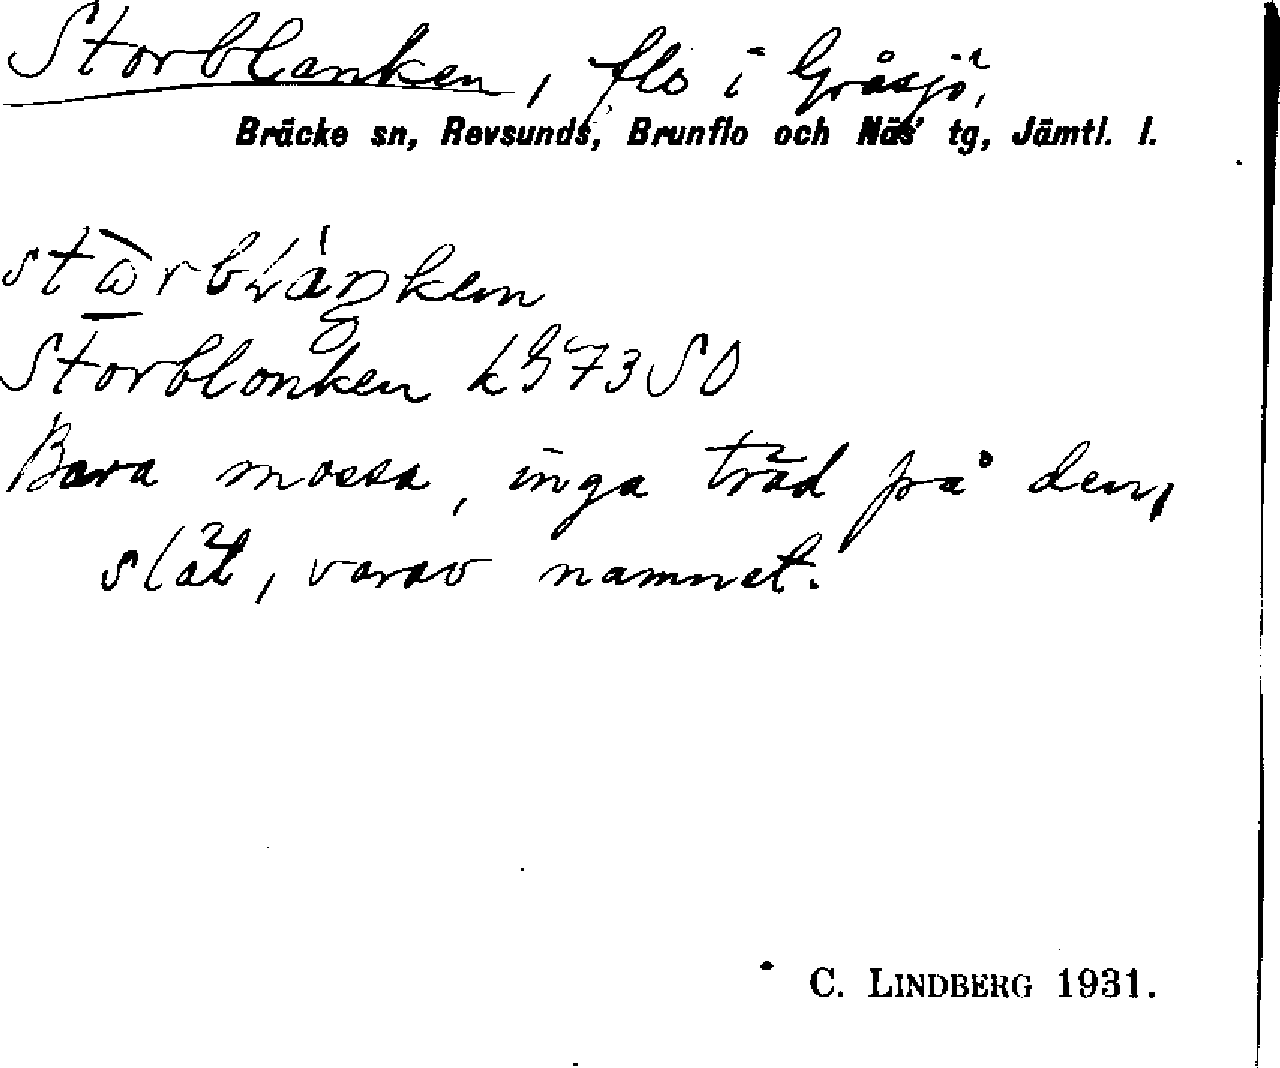 Storblanken, flo i Gråsjö,
Bräcke sn, Revsunds, Brunflo och Näs' tg, Jämtl. l.
Storblonken k 973 SO
Bara mossa, inga träd på den,
slät, varav namnet.
C. LINDBERG 1931.